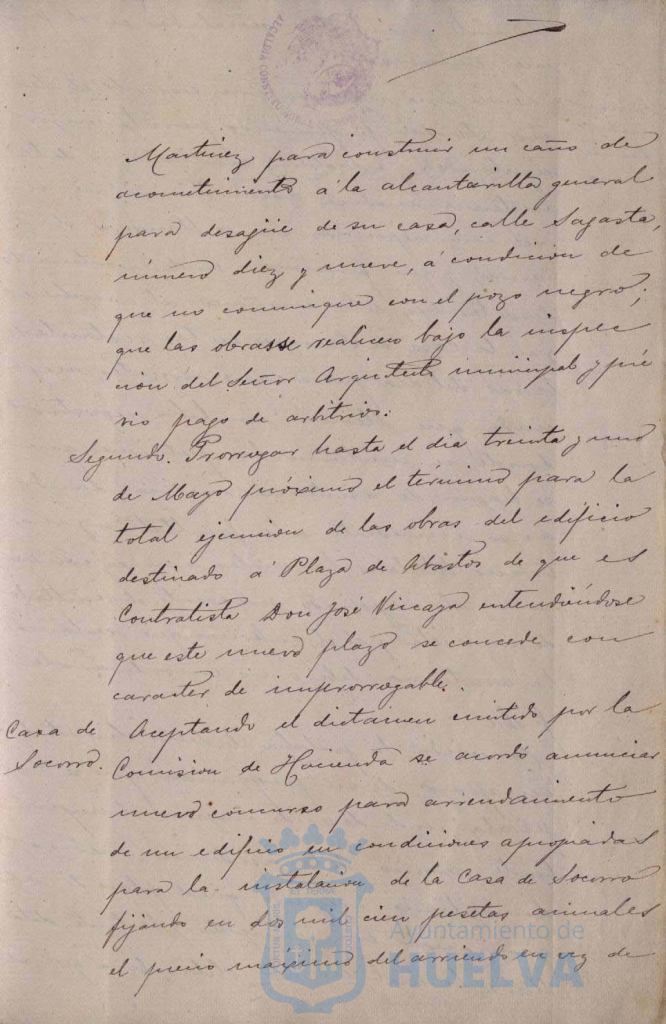 ALCALDIA CONSTITUCIONAL
Martinez para construir un caño de
acometimiento á la alcantarilla general
para desagüe de su casa, calle Sagasta,
número diez y nueve, á condicion de
que no comunique con el pozo negro;
que las obras se realicen bajo la inspec
cion del Señor Arquitecto municipal y pré
vio pago de arbitrios.
Segundo. Prorrogar hasta el dia treinta y uno
de Mayo próximo el término para la
total ejecucion de las obras del edificio
destinado á Plaza de Abastos de que es
Contratista Don José Vizcaya entendiéndose
que este nuevo plazo se concede con
caracter de improrrogable.
Casa de
Socorro.
Aceptando el dictamen emitido por la
Comision de Hacienda se acordó anunciar
nuevo concurso para arrendamiento
de un edificio en condiciones apropiadas
para la instalacion de la Casa de Socorro
fijando en dos mil cien pesetas anuales
el precio máximo del arriendo en vez de
Ayuntamiento de
HUELVA